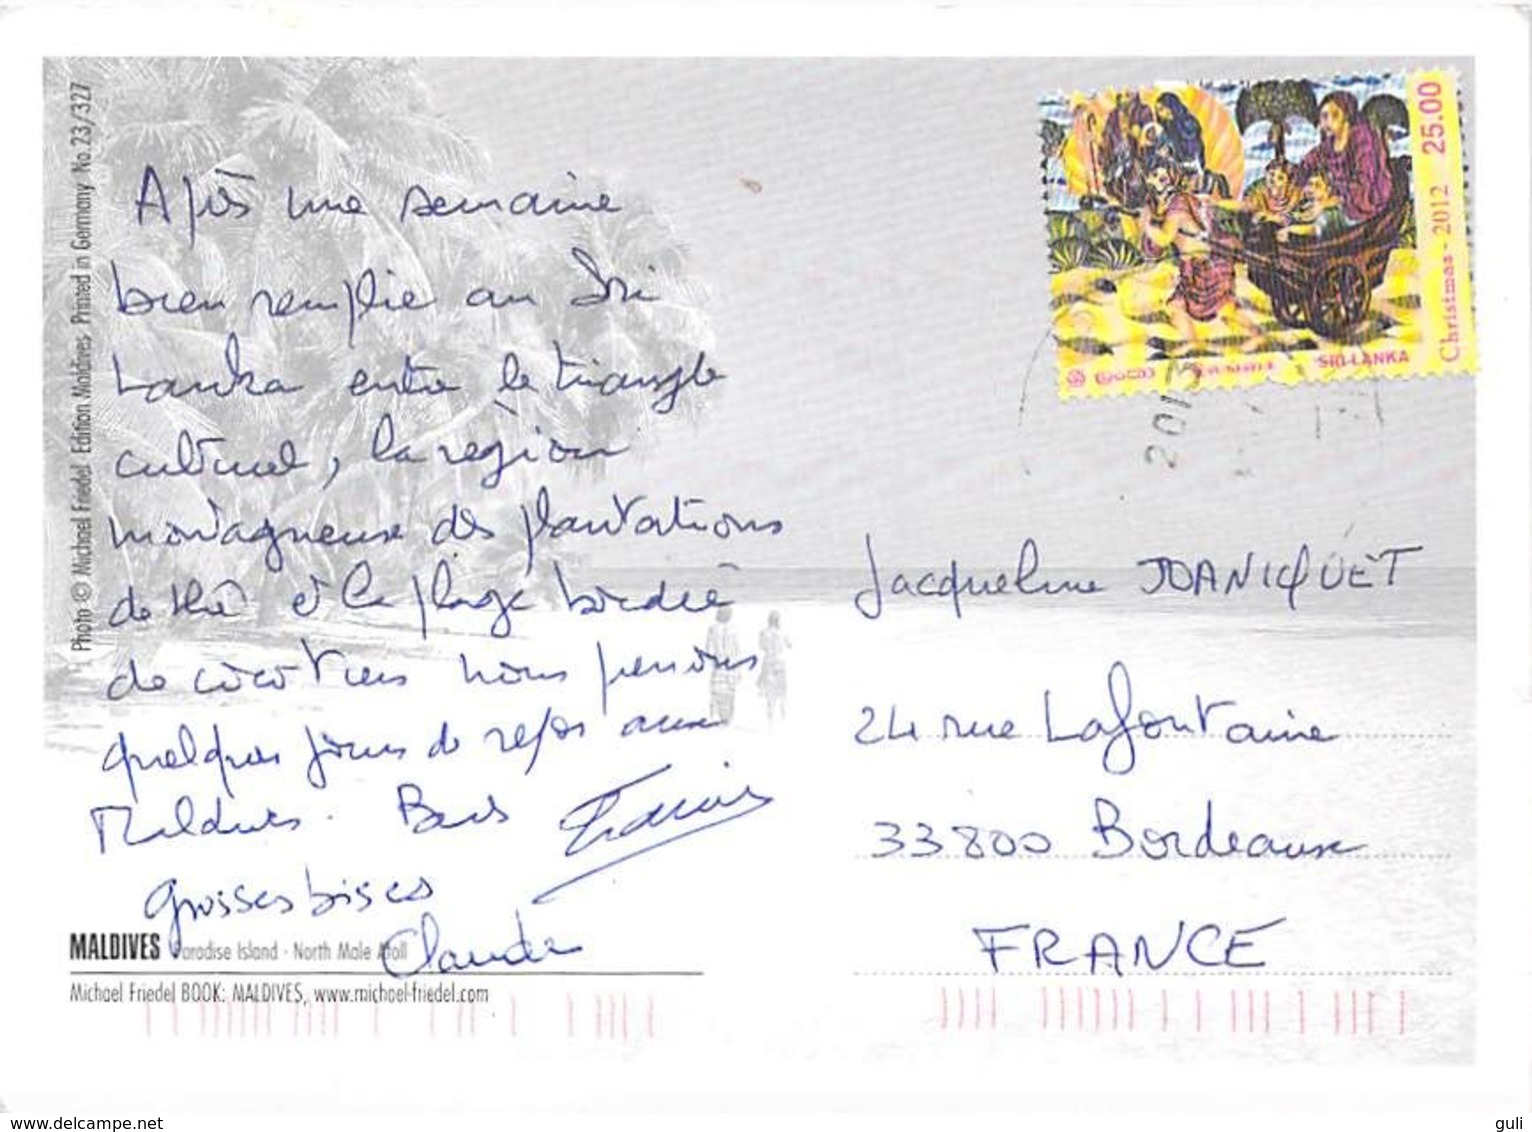 Photo © Michael Friedel Edition Maldives Printed in Germany No.23/327
Après une semaine
bien remplie au Sri
Lanka entre le triangle
culturel, la région
montagneuse des plantations
de thé et la plage bordée
de cocotiers nous prenons
quelques jours de repos aux
Maldives.
grosses bises
Claude
MALDIVES Paradise Island - North Male Atoll
Michael Friedel BOOK: MALDIVES, www.michael-friedel.com
25.00
Christmas - 2012
SRI LANKA
2013
Jacqueline JOANICQUET
24 rue Lafontaine
33800 Bordeaux
FRANCE
www.delcampe.net
guli